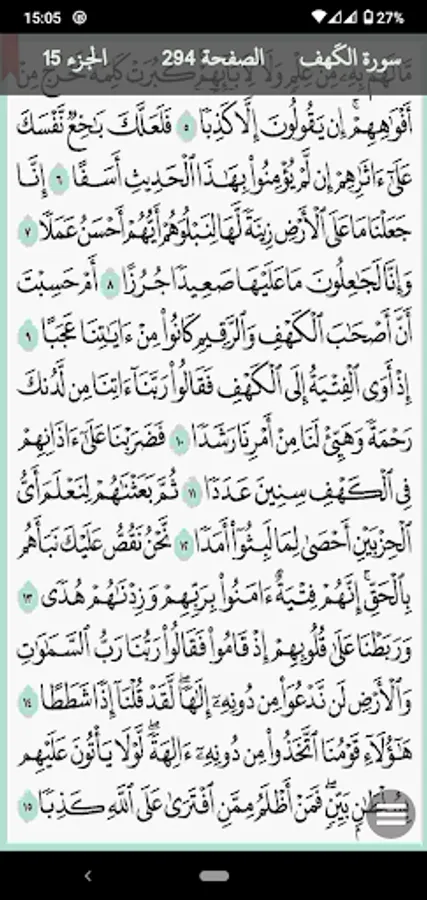 15:05 27%
سورة الكهف الصفحة 294 الجزء 15
مَّا لَهُم بِهِۦ مِنۡ عِلۡمٖ وَلَا لِأٓبَآئِهِمۡۚ كَبُرَتۡ كَلِمَةٗ تَخۡرُجُ مِنۡ
أَفۡوَٰهِهِمۡۚ إِن يَقُولُونَ إِلَّا كَذِبٗا ٥ فَلَعَلَّكَ بَٰخِعٞ نَّفۡسَكَ
عَلَىٰٓ ءَاثَٰرِهِمۡ إِن لَّمۡ يُؤۡمِنُواْ بِهَٰذَا ٱلۡحَدِيثِ أَسَفًا ٦ إِنَّا
جَعَلۡنَا مَا عَلَى ٱلۡأَرۡضِ زِينَةٗ لَّهَا لِنَبۡلُوَهُمۡ أَيُّهُمۡ أَحۡسَنُ عَمَلٗا ٧
وَإِنَّا لَجَٰعِلُونَ مَا عَلَيۡهَا صَعِيدٗا جُرُزًا ٨ أَمۡ حَسِبۡتَ
أَنَّ أَصۡحَٰبَ ٱلۡكَهۡفِ وَٱلرَّقِيمِ كَانُواْ مِنۡ ءَايَٰتِنَا عَجَبًا ٩
إِذۡ أَوَى ٱلۡفِتۡيَةُ إِلَى ٱلۡكَهۡفِ فَقَالُواْ رَبَّنَآ ءَاتِنَا مِن لَّدُنكَ
رَحۡمَةٗ وَهَيِّئۡ لَنَا مِنۡ أَمۡرِنَا رَشَدٗا ١٠ فَضَرَبۡنَا عَلَىٰٓ ءَاذَانِهِمۡ
فِي ٱلۡكَهۡفِ سِنِينَ عَدَدٗا ١١ ثُمَّ بَعَثۡنَٰهُمۡ لِنَعۡلَمَ أَيُّ
ٱلۡحِزۡبَيۡنِ أَحۡصَىٰ لِمَا لَبِثُوٓاْ أَمَدٗا ١٢ نَّحۡنُ نَقُصُّ عَلَيۡكَ نَبَأَهُم
بِٱلۡحَقِّۚ إِنَّهُمۡ فِتۡيَةٌ ءَامَنُواْ بِرَبِّهِمۡ وَزِدۡنَٰهُمۡ هُدٗى ١٣
وَرَبَطۡنَا عَلَىٰ قُلُوبِهِمۡ إِذۡ قَامُواْ فَقَالُواْ رَبُّنَا رَبُّ ٱلسَّمَٰوَٰتِ
وَٱلۡأَرۡضِ لَن نَّدۡعُوَاْ مِن دُونِهِۦٓ إِلَٰهٗاۖ لَّقَدۡ قُلۡنَآ إِذٗا شَطَطًا ١٤
هَٰٓؤُلَآءِ قَوۡمُنَا ٱتَّخَذُواْ مِن دُونِهِۦٓ ءَالِهَةٗۖ لَّوۡلَا يَأۡتُونَ عَلَيۡهِم
بِسُلۡطَٰنِۭ بَيِّنٖۖ فَمَنۡ أَظۡلَمُ مِمَّنِ ٱفۡتَرَىٰ عَلَى ٱللَّهِ كَذِبٗا ١٥